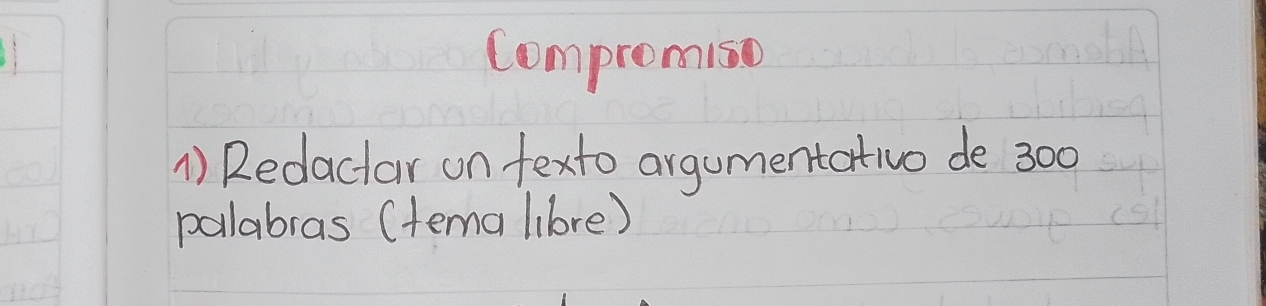 Compromiso
1) Redactar un texto argumentativo de 300
palabras (tema libre)